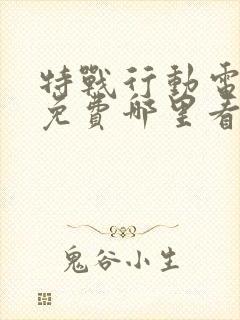 特戰行動電
免費哪里看
鬼谷小生